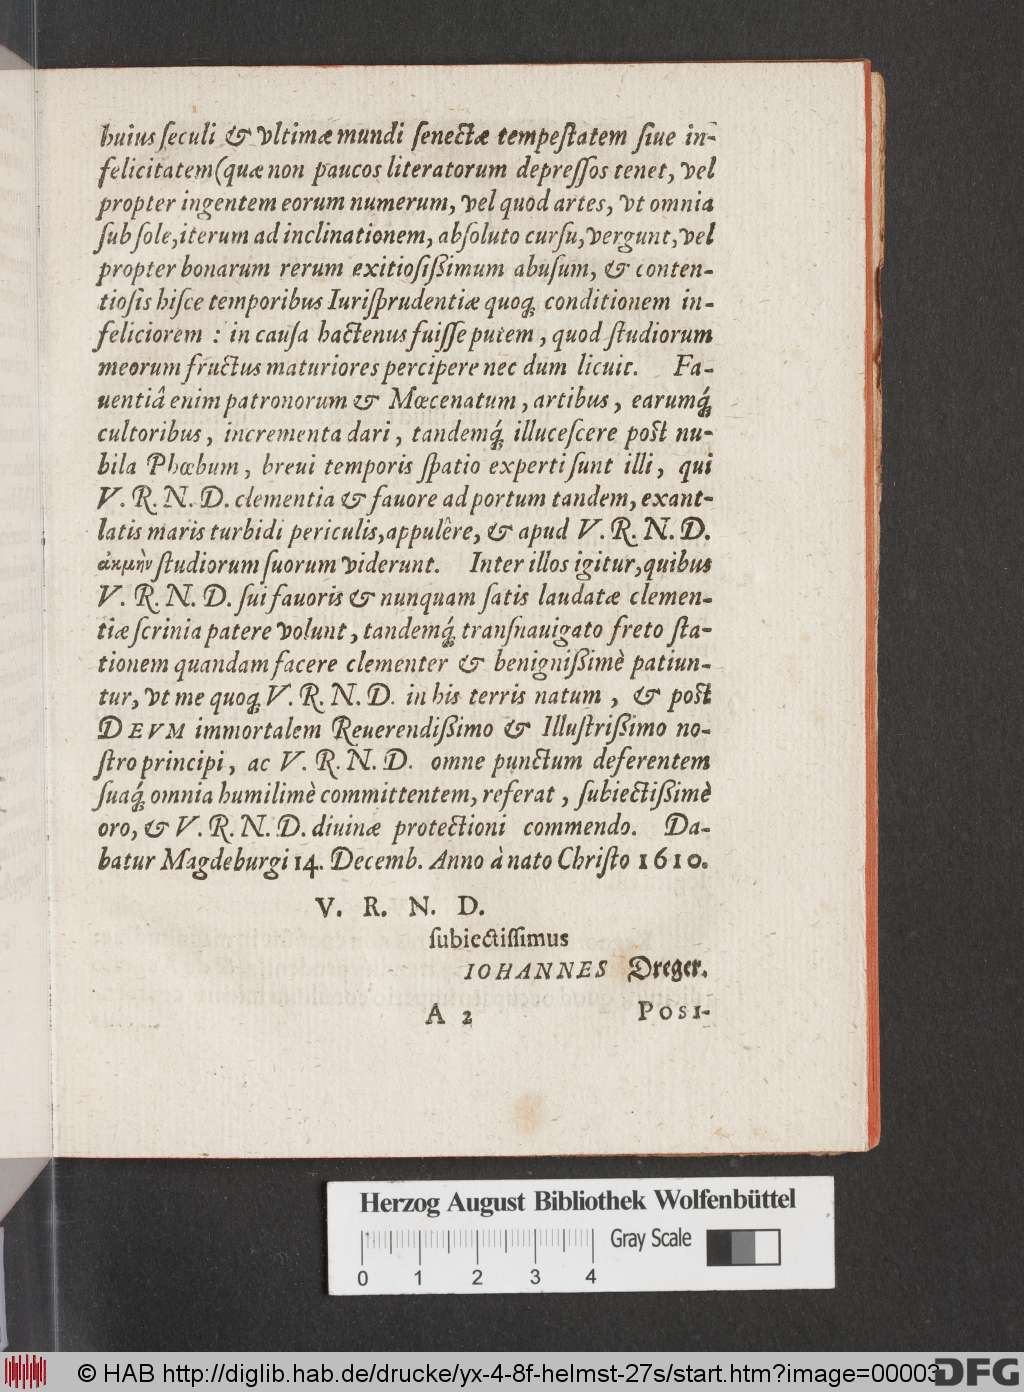 huius ſeculi & vltimæ mundi ſenectæ tempeſtatem ſiue in-
felicitatem (quæ non paucos literatorum depreſſos tenet, vel
propter ingentem eorum numerum, vel quod artes, vt omnia
ſub ſole, iterum ad inclinationem, abſoluto curſu, vergunt, vel
propter bonarum rerum exitioſißimum abuſum, & conten-
tioſis hiſce temporibus Iuriſprudentiæ quoq́; conditionem in-
feliciorem : in cauſa hactenus fuiſſe putem, quod ſtudiorum
meorum fructus maturiores percipere nec dum licuit. Fa-
uentiâ enim patronorum & Mœcenatum, artibus, earumq́;
cultoribus, incrementa dari, tandemq́; illuceſcere poſt nu-
bila Phœbum, breui temporis ſpatio experti ſunt illi, qui
V. R. N. D. clementia & fauore ad portum tandem, exant-
latis maris turbidi periculis, appulêre, & apud V. R. N. D.
ἀκμὴν ſtudiorum ſuorum viderunt. Inter illos igitur, quibus
V. R. N. D. ſui fauoris & nunquam ſatis laudatæ clemen-
tiæ ſcrinia patere volunt, tandemq́; tranſnauigato freto ſta-
tionem quandam facere clementer & benignißimè patiun-
tur, vt me quoq; V. R. N. D. in his terris natum, & poſt
DEVM immortalem Reuerendißimo & Illuſtrißimo no-
ſtro principi, ac V. R. N. D. omne punctum deferentem
ſuaq́; omnia humilimè committentem, referat, ſubiectißimè
oro, & V. R. N. D. diuinæ protectioni commendo. Da-
batur Magdeburgi 14. Decemb. Anno à nato Chriſto 1610.
V. R. N. D.
ſubiectiſſimus
IOHANNES Dreger.
A 2 POSI-
Herzog August Bibliothek Wolfenbüttel
Gray Scale
0 1 2 3 4
© HAB http://diglib.hab.de/drucke/yx-4-8f-helmst-27s/start.htm?image=00003
DFG